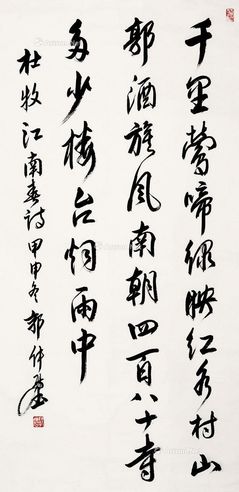 千里莺啼绿映红水村山
郭酒旗风南朝四百八十寺
多少楼台烟雨中
杜牧江南春诗甲申冬郭仲